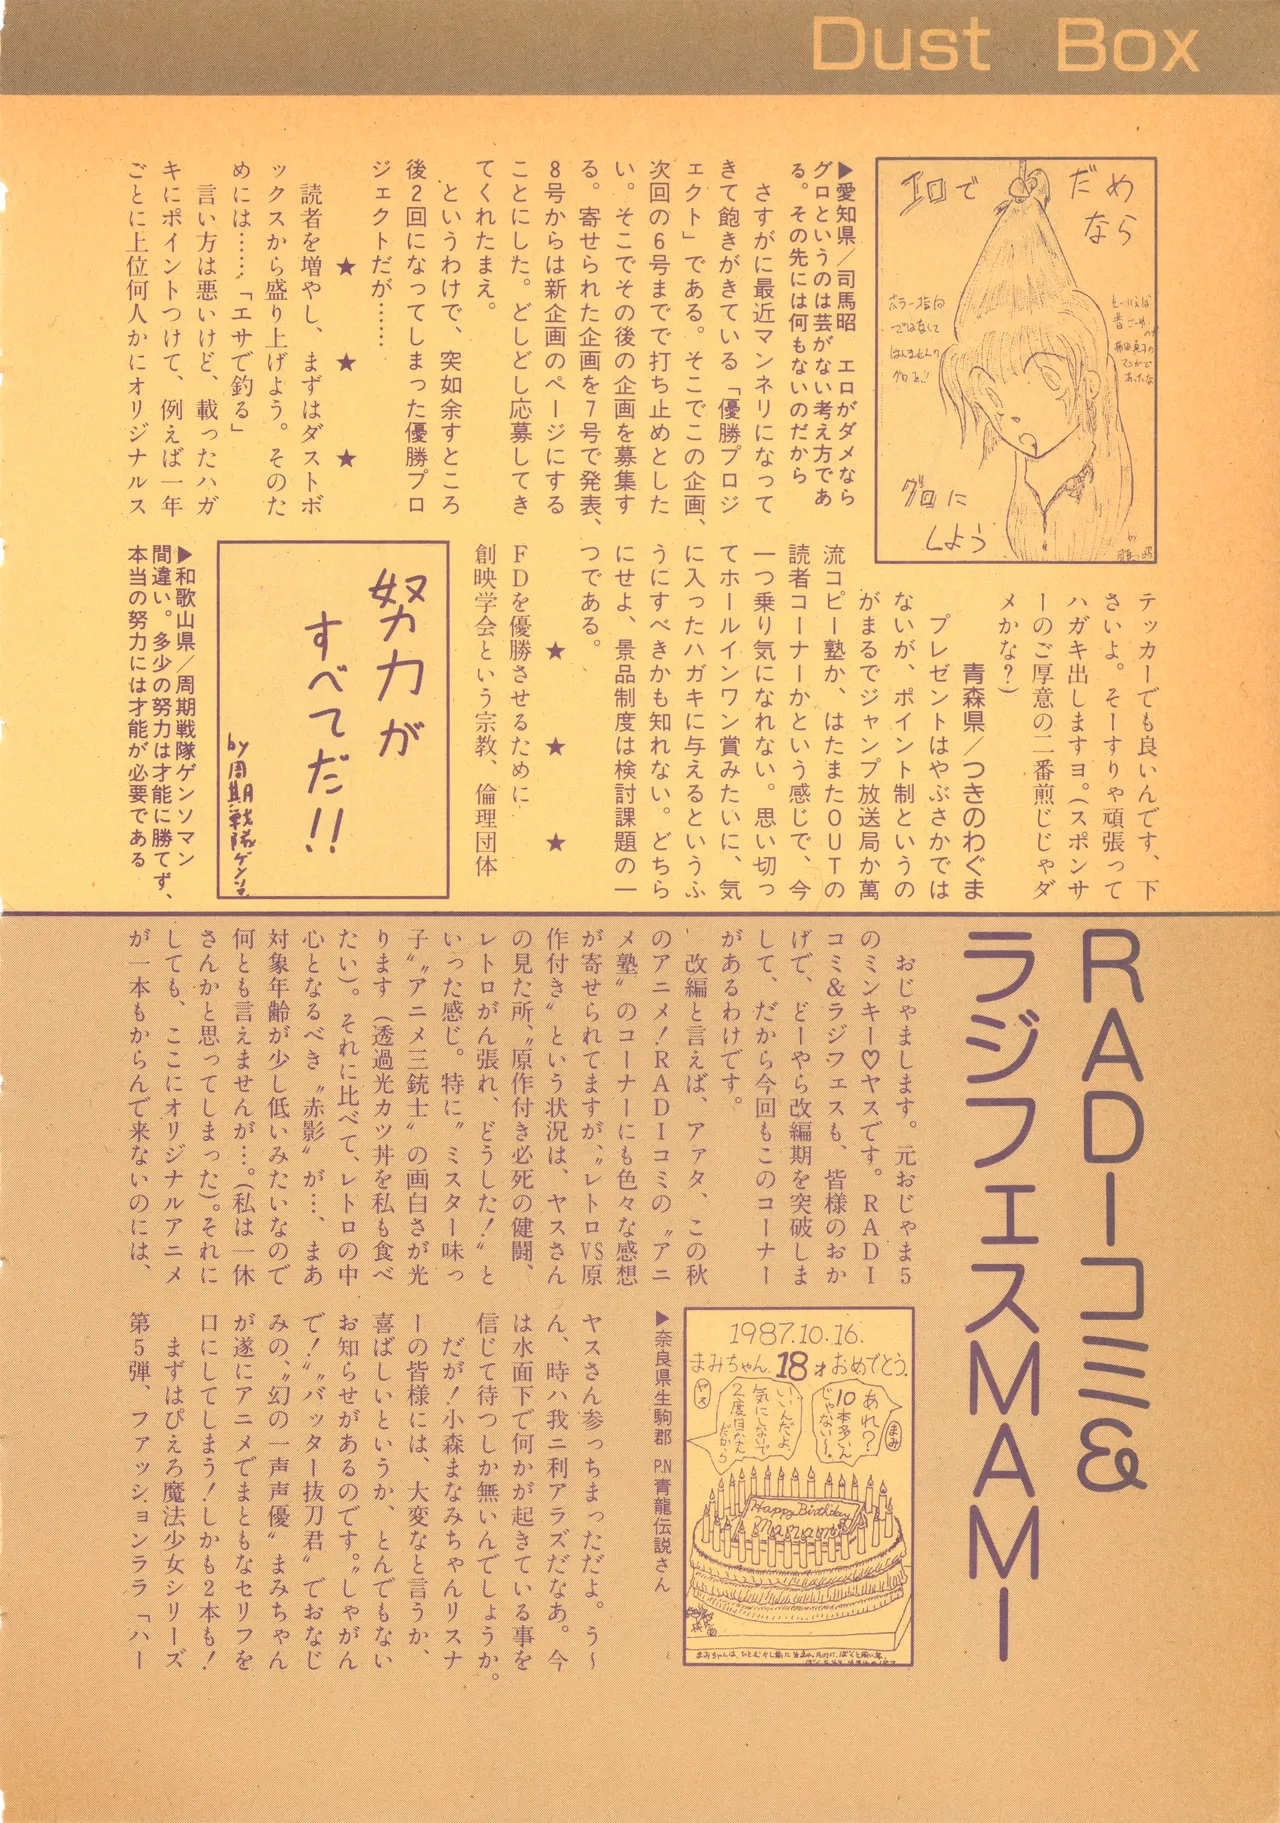 Dust Box
エロで
だめ
なら
グロに
しよう
▶愛知県／司馬昭　エロがダメなら
グロというのは芸がない考え方であ
る。その先には何もないのだから
さすがに最近マンネリになって
きて飽きがきている「優勝プロジ
ェクト」である。そこでこの企画、
次回の6号までで打ち止めとした
い。そこでその後の企画を募集す
る。寄せられた企画を7号で発表、
8号からは新企画のページにする
ことにした。どしどし応募してき
てくれたまえ。
というわけで、突如余すところ
後2回になってしまった優勝プロ
ジェクトだが……
★　★　★
読者を増やし、まずはダストボ
ックスから盛り上げよう。そのた
めには……「エサで釣る」
言い方は悪いけど、載ったハガ
キにポイントつけて、例えば一年
ごとに上位何人かにオリジナルス
テッカーでも良いんです、下
さいよ。そーすりゃ頑張って
ハガキ出しますヨ。(スポンサ
ーのご厚意の二番煎じじゃダ
メかな?)
青森県／つきのわぐま
プレゼントはやぶさかでは
ないが、ポイント制というの
がまるでジャンプ放送局か萬
流コピー塾か、はたまたOUTの
読者コーナーかという感じで、今
一つ乗り気になれない。思い切っ
てホールインワン賞みたいに、気
に入ったハガキに与えるというふ
うにすべきかも知れない。どちら
にせよ、景品制度は検討課題の一
つである。
★　★　★
FDを優勝させるために
創映学会という宗教、倫理団体
努力が
すべてだ!!
by周期戦隊ゲンソマン
▶和歌山県／周期戦隊ゲンソマン
間違い。多少の努力は才能に勝てず、
本当の努力には才能が必要である
RADIーコミ&
ラジフェスMAMI
おじゃまします。元おじゃま5
のミンキー♡ヤスです。RADI
コミ&ラジフェスも、皆様のおか
げで、どーやら改編期を突破しま
して、だから今回もこのコーナー
があるわけです。
改編と言えば、アァタ、この秋
のアニメ!RADIコミの〝アニ
メ塾〟のコーナーにも色々な感想
が寄せられてますが、〝レトロVS原
作付き〟という状況は、ヤスさん
の見た所、〝原作付き必死の健闘、
レトロがん張れ、どうした!〟と
いった感じ。特に〝ミスター味っ
子〟〝アニメ三銃士〟の画白さが光
ります（透過光カツ丼を私も食べ
たい）。それに比べて、レトロの中
心となるべき〝赤影〟が…、まあ
対象年齢が少し低いみたいなので
何とも言えませんが…。(私は一休
さんかと思ってしまった)。それに
しても、ここにオリジナルアニメ
が一本もからんで来ないのには、
1987.10.16.
まみちゃん.18才おめでとう.
あれ?
10本多いん
じゃない〜。
まみ
いいんだよ
気にしないで
2度目なん
だから
ヤス
Happy Birthday
Mamami
▶奈良県生駒郡　P.N青龍伝説さん
ヤスさん参っちまっただよ。う〜
ん、時ハ我ニ利アラズだなあ。今
は水面下で何かが起きている事を
信じて待つしか無いんでしょうか。
だが!小森まなみちゃんリスナ
ーの皆様には、大変なと言うか、
喜ばしいというか、とんでもない
お知らせがあるのです。〝しゃがん
で!〟〝バッター抜刀君〟でおなじ
みの、〝幻の一声声優〟まみちゃん
が遂にアニメでまともなセリフを
口にしてしまう!しかも2本も!
まずはぴえろ魔法少女シリーズ
第5弾、ファッションララ「ハー